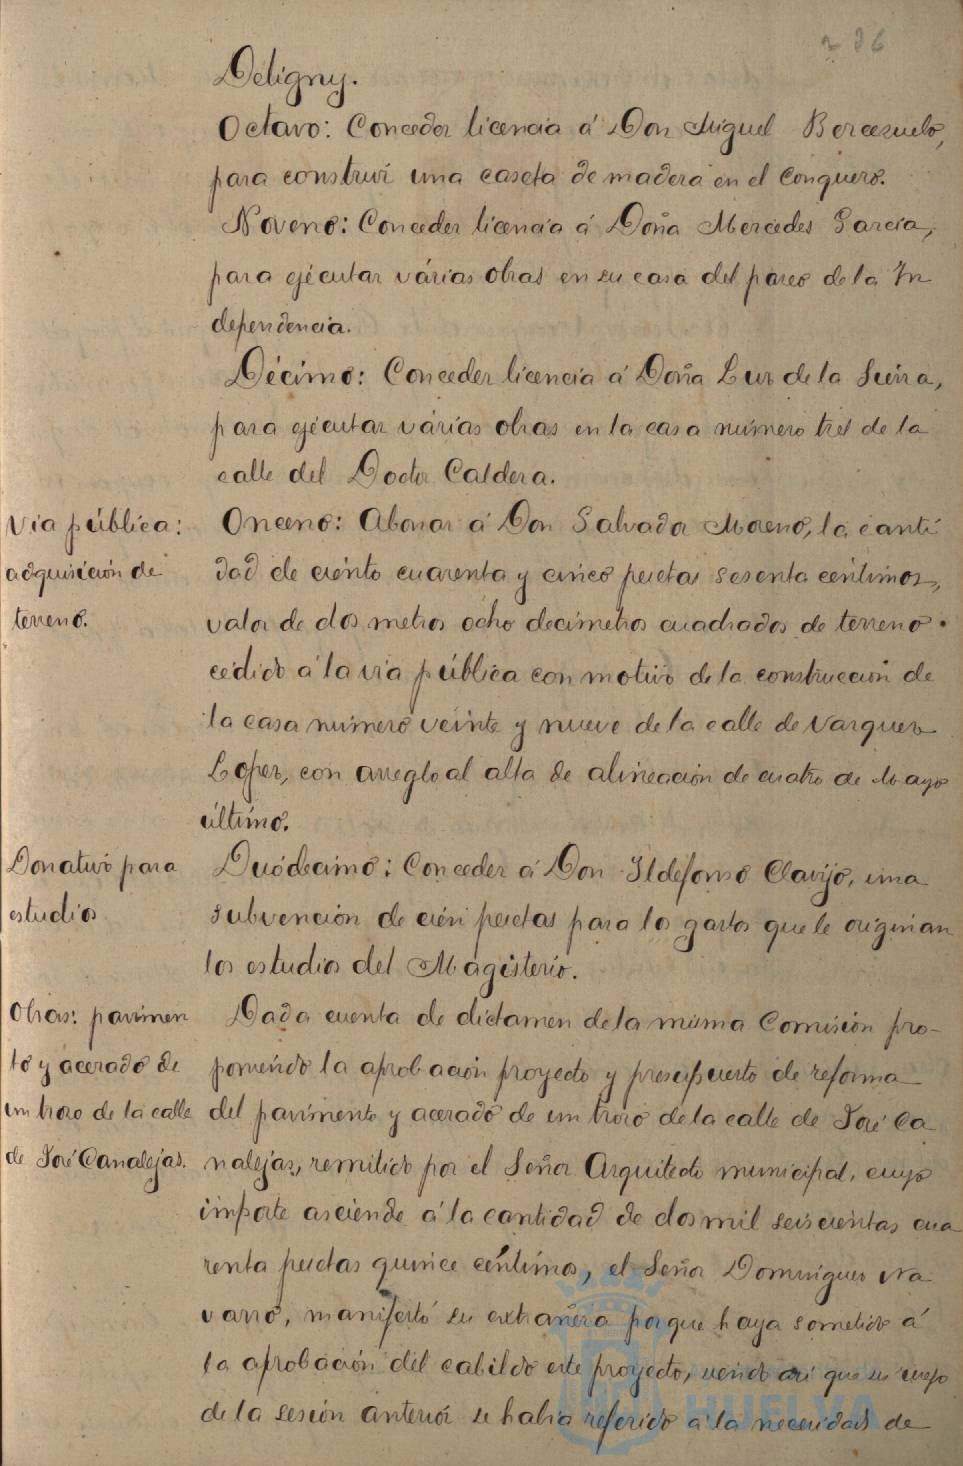 236
Deligny.
Octavo: Conceder licencia á Don Miguel Bercezuelo,
para construir una caseta de madera en el Conquero.
Noveno: Conceder licencia á Doña Mercedes García,
para ejecutar várias obras en su casa del paseo de la In
dependencia.
Décimo: Conceder licencia á Doña Luz de la Sierra,
para ejecutar várias obras en la casa número tres de la
calle del Doctor Caldera.
Via pública:
adquisición de
terreno.
Onceno: Abonar á Don Salvador Moreno, la canti
dad de ciento cuarenta y cinco pesetas sesenta centimos,
valor de dos metros ocho decimetros cuadrados de terreno
cedido á la via pública con motivo de la construccion de
la casa número veinte y nueve de la calle de Vazquez
Lopez, con arreglo al alta de alineación de cuatro de Mayo
último.
Donativo para
estudios
Duódecimo: Conceder á Don Ildefonso Clavijo, una
subvención de cien pesetas para los gastos que le originan
los estudios del Magisterio.
Obras: pavimen
to y acerado de
un trozo de la calle
de José Canalejas.
Dada cuenta de dictamen de la misma Comisión pro-
poniendo la aprobación proyecto y presupuesto de reforma
del pavimento y acerado de un trozo de la calle de José Ca
nalejas, remitido por el Señor Arquitecto municipal, cuyo
importe asciende á la cantidad de dos mil seiscientas cua
renta pesetas quince céntimos, el Señor Dominguez Na
varro, manifestó su extrañeza porque haya sometido á
la aprobación del cabildo este proyecto, siendo asi que en
de la sesión anterior se habia referido á la necesidad de
HUELVA